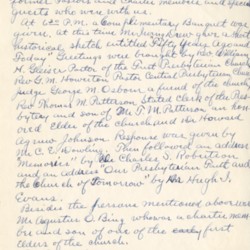 former pastors and charter members and special
guests who were with us.
At 6:30 P.M. a Complimentary Banquet was
given, at this time Mr. gave a short
historical sketch entitled Fifty Years Ago and
Today" Greetings were brought by Rev. William
H. Pastor of the First Presbyterian Church
Rev. G. W. Houston, Pastor Central Presbyterian Church
Judge George M. Osborn a friend of the church
Rev Thomas M. Patterson Stated Clerk of Pres-
bytery and son of Mr. P. W. Patterson an hon-
ored Elder of the church and Mr Howard
Agnew Johnson Response was given by
Mr. C. E. Then followed an address
Memories" by Mr Charles S. Robertson
and an address "Our Presbyterian Past, and
the Church of Tomorrow" by Mr Hugh I
Evans.
Besides the persons mentioned above was
Mr Augustus O. Bing who was a charter mem-
ber and son of one of the early first
elders of the church.